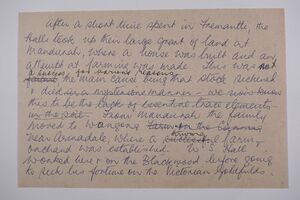 After a short time spent in Fremantle, the
Halls took up their large Grant of land at
Mandurah, where a house was built and an
attempt at farming was made. This was not
a success, for various reasons
the main cause being that stock sickened
& died in a mysterious manner - we now know
this to be the lack of essential trace elements
in the soil. From Mandurah the family
moved to Wongong
near Armadale, where a farm,
orchard was established. W. S. Hall
worked here on the Blackwood before going
to seek his fortune on the Victorian Goldfields.